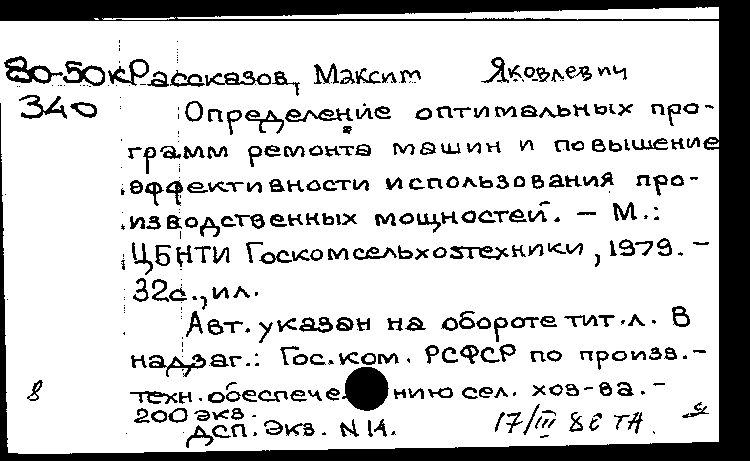 80-50к Рассказов, Максим Яковлевич
340 Определение оптимальных про-
грамм ремонта машин и повышение
эффективности использования про-
изводственных мощностей. - М.:
ЦБНТИ Госкомсельхозтехники, 1979. -
32с., ил.
Авт. указан на обороте тит. л. В
надзаг.: Гос. ком. РСФСР по произв.-
8 техн. обеспече нию сел. хоз-ва. -
200 экз.
ДСП. Экз. N 14. 17/III